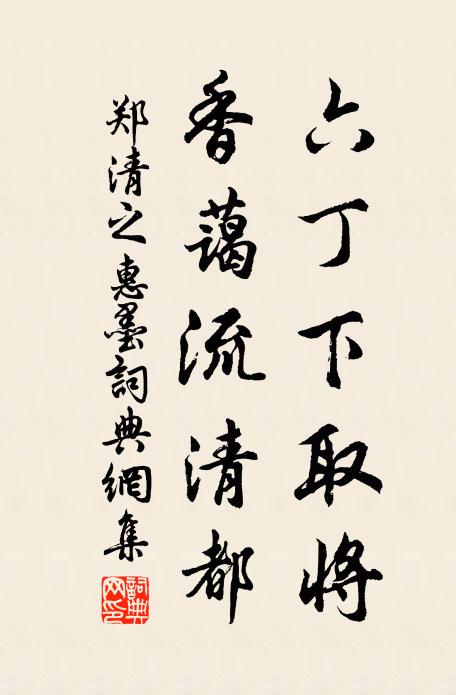 六丁下取将
香蔼流清都
郑清之惠墨詞典網集
詞典网印